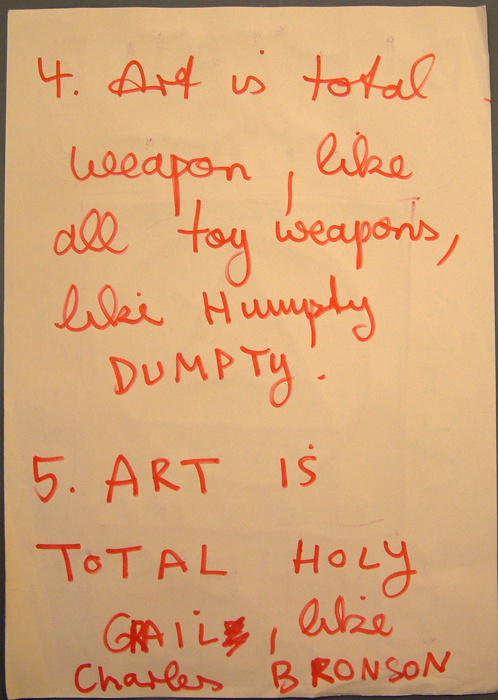 4. Art is total
weapon, like
all toy weapons,
like Humpty
DUMPTy.
5. ART iS
TOTAL HOLY
GRAIL, like
Charles BRONSON